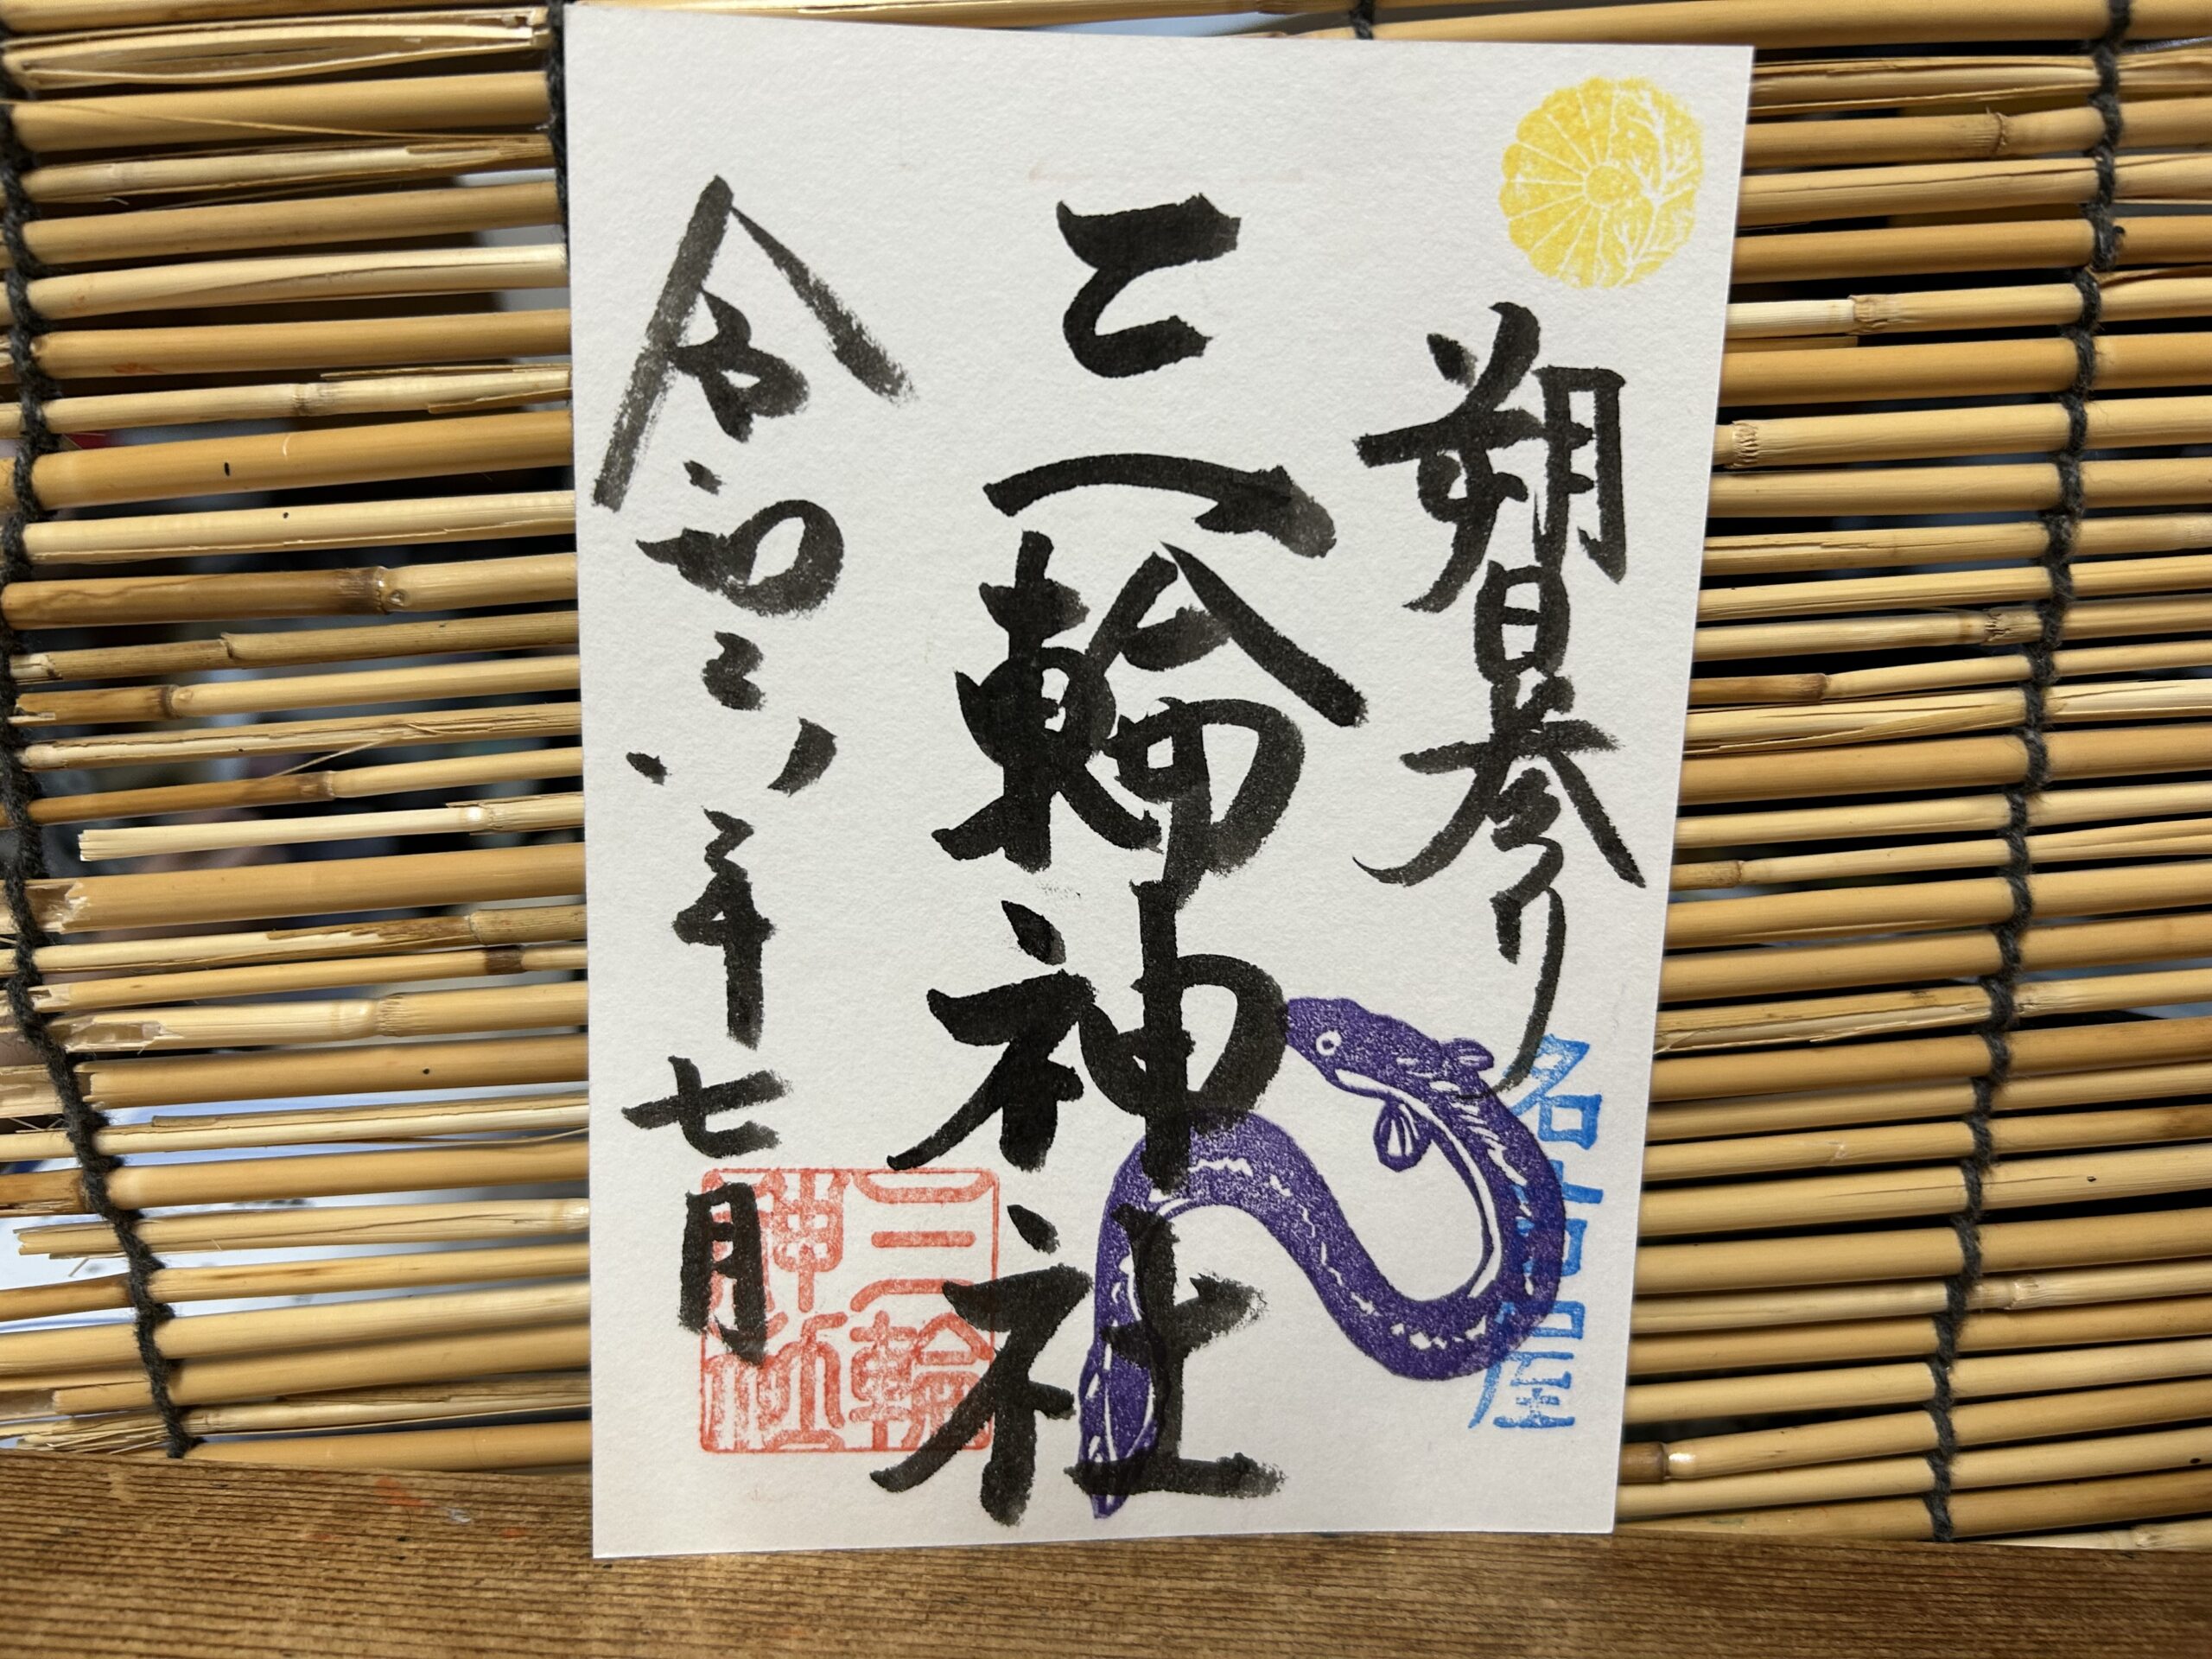 朔日参り
名古屋
三輪神社
令和六年七月
三輪
神社